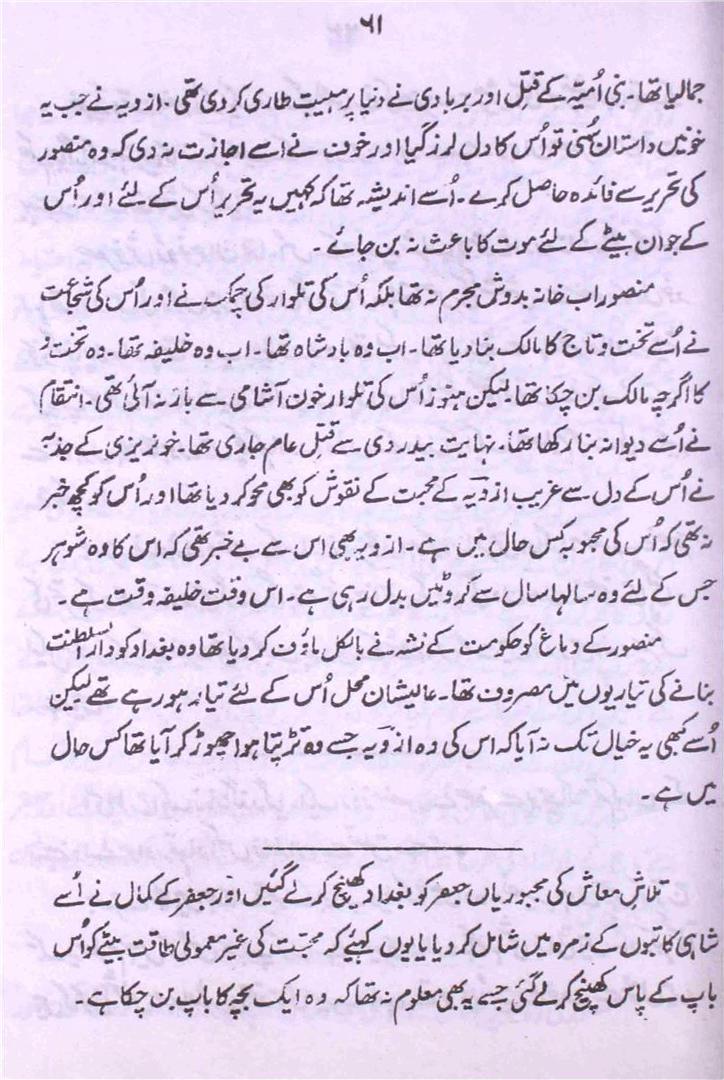 ۶۱
جمالیا تھا۔ بنی اُمیّہ کے قتل اور بربادی نے دنیا پر ہیبت طاری کر دی تھی۔ ازویہ نے جب یہ
خونیں داستان سُنی تو اُس کا دل لرز گیا اور خوف نے اسے اجازت نہ دی کہ وہ منصور
کی تحریر سے فائدہ حاصل کرے۔ اُسے اندیشہ تھا کہ کہیں یہ تحریر اُس کے لئے اور اُس
کے جوان بیٹے کے لئے موت کا باعث نہ بن جائے۔
منصور اب خانہ بدوش مجرم نہ تھا بلکہ اُس کی تلوار کی چمک نے اور اُس کی شجاعت
نے اُسے تخت و تاج کا مالک بنا دیا تھا۔ اب وہ بادشاہ تھا۔ اب وہ خلیفہ تھا۔ وہ تخت و
کا اگرچہ مالک بن چکا تھا لیکن ہنوز اُس کی تلوار خون آشامی سے باز نہ آئی تھی۔ انتقام
نے اُسے دیوانہ بنا رکھا تھا۔ نہایت بیدردی سے قتل عام جاری تھا۔ خونریزی کے جذبہ
نے اُس کے دل سے غریب ازویہ کے محبت کے نقوش کو بھی محو کر دیا تھا اور اُس کو کچھ خبر
نہ تھی کہ اُس کی محبوبہ کس حال میں ہے۔ ازویہ بھی اس سے بے خبر تھی کہ اس کا وہ شوہر
جس کے لئے وہ سالہا سال سے کروٹیں بدل رہی ہے۔ اس وقت خلیفہ وقت ہے۔
منصور کے دماغ کو حکومت کے نشہ نے بالکل ماؤف کر دیا تھا وہ بغداد کو دارالسلطنت
بنانے کی تیاریوں میں مصروف تھا۔ عالیشان محل اُس کے لئے تیار ہو رہے تھے لیکن
اُسے کبھی یہ خیال تک نہ آیا کہ اس کی وہ ازویہ جسے وہ تڑپتا ہوا چھوڑ کر آیا تھا کس حال
میں ہے۔
تلاشِ معاش کی مجبوریاں جعفر کو بغداد کھینچ کر لے گئیں اور جعفر کے کمال نے اُسے
شاہی کاتبوں کے زمرہ میں شامل کر دیا یا یوں کہئیے کہ محبّت کی غیر معمولی طاقت بیٹے کو اُس
باپ کے پاس کھینچ کر لے گئی جسے یہ بھی معلوم نہ تھا کہ وہ ایک بچہ کا باپ بن چکا ہے۔